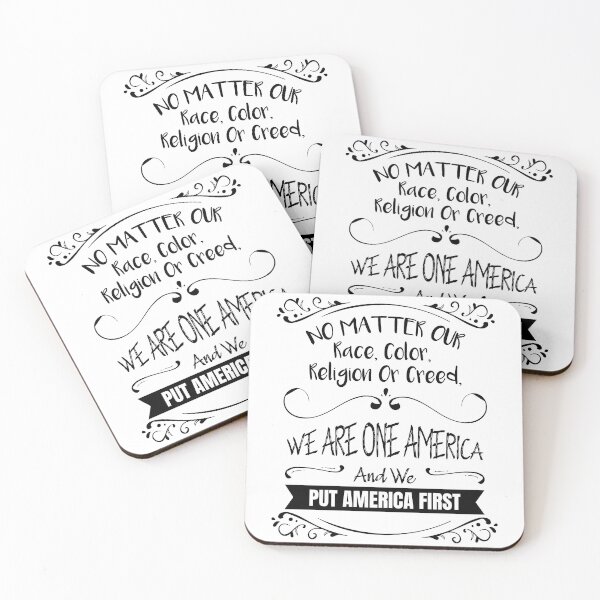 NO MATTER OUR
Race, Color,
Religion Or Creed.
NO MATTER OUR
Race, Color,
Religion Or Creed.
WE ARE ONE AMERICA
And We
NO MATTER OUR
Race, Color,
Religion Or Creed.
WE ARE ONE AMERICA
And We
PUT AMERICA
NO MATTER OUR
Race, Color,
Religion Or Creed.
WE ARE ONE AMERICA
And We
PUT AMERICA FIRST